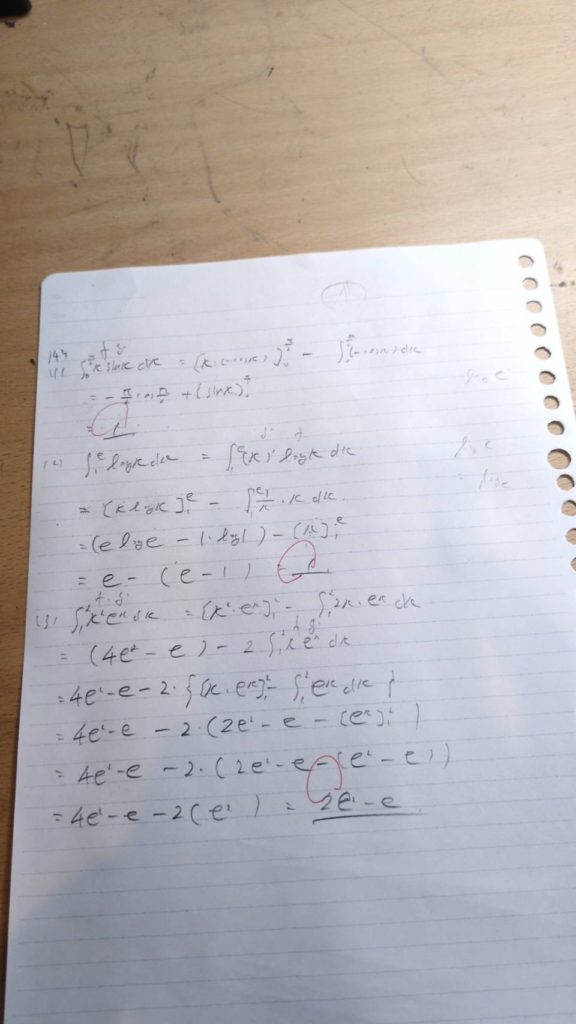 144
(1) ∫₀^{π/2} x sin x dx = [x·(-cos x)]₀^{π/2} - ∫₀^{π/2} (-cos x) dx
= -π/2 cos π/2 + [sin x]₀^{π/2}
= 1
(2) ∫₁^e log x dx = ∫₁^e (x)' log x dx
= [x log x]₁^e - ∫₁^e 1/x · x dx
= (e log e - 1·log 1) - [x]₁^e
= e - (e - 1) = 1
(3) ∫₁² x² eˣ dx = [x²·eˣ]₁² - ∫₁² 2x·eˣ dx
= (4e² - e) - 2 ∫₁² x eˣ dx
= 4e² - e - 2·{[x·eˣ]₁² - ∫₁² eˣ dx}
= 4e² - e - 2·(2e² - e - [eˣ]₁²)
= 4e² - e - 2·(2e² - e - (e² - e))
= 4e² - e - 2(e²) = 2e² - e